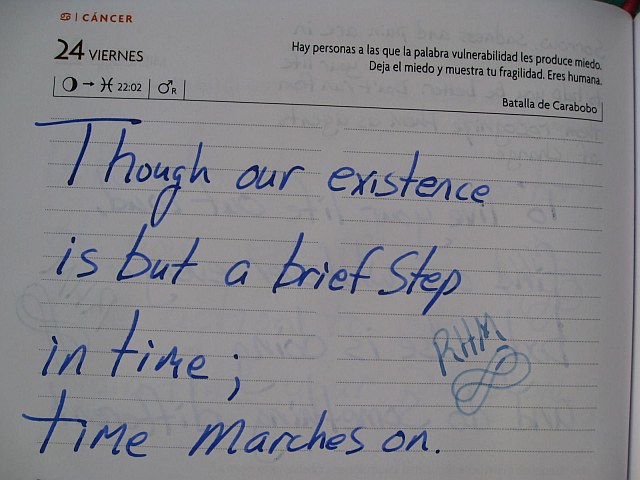 ♋ | CÁNCER
24 VIERNES
Hay personas a las que la palabra vulnerabilidad les produce miedo.
Deja el miedo y muestra tu fragilidad. Eres humana.
→ ♓ 22:02 | ♂R
Batalla de Carabobo
Though our existence
is but a brief step
in time;
RHM
time marches on.